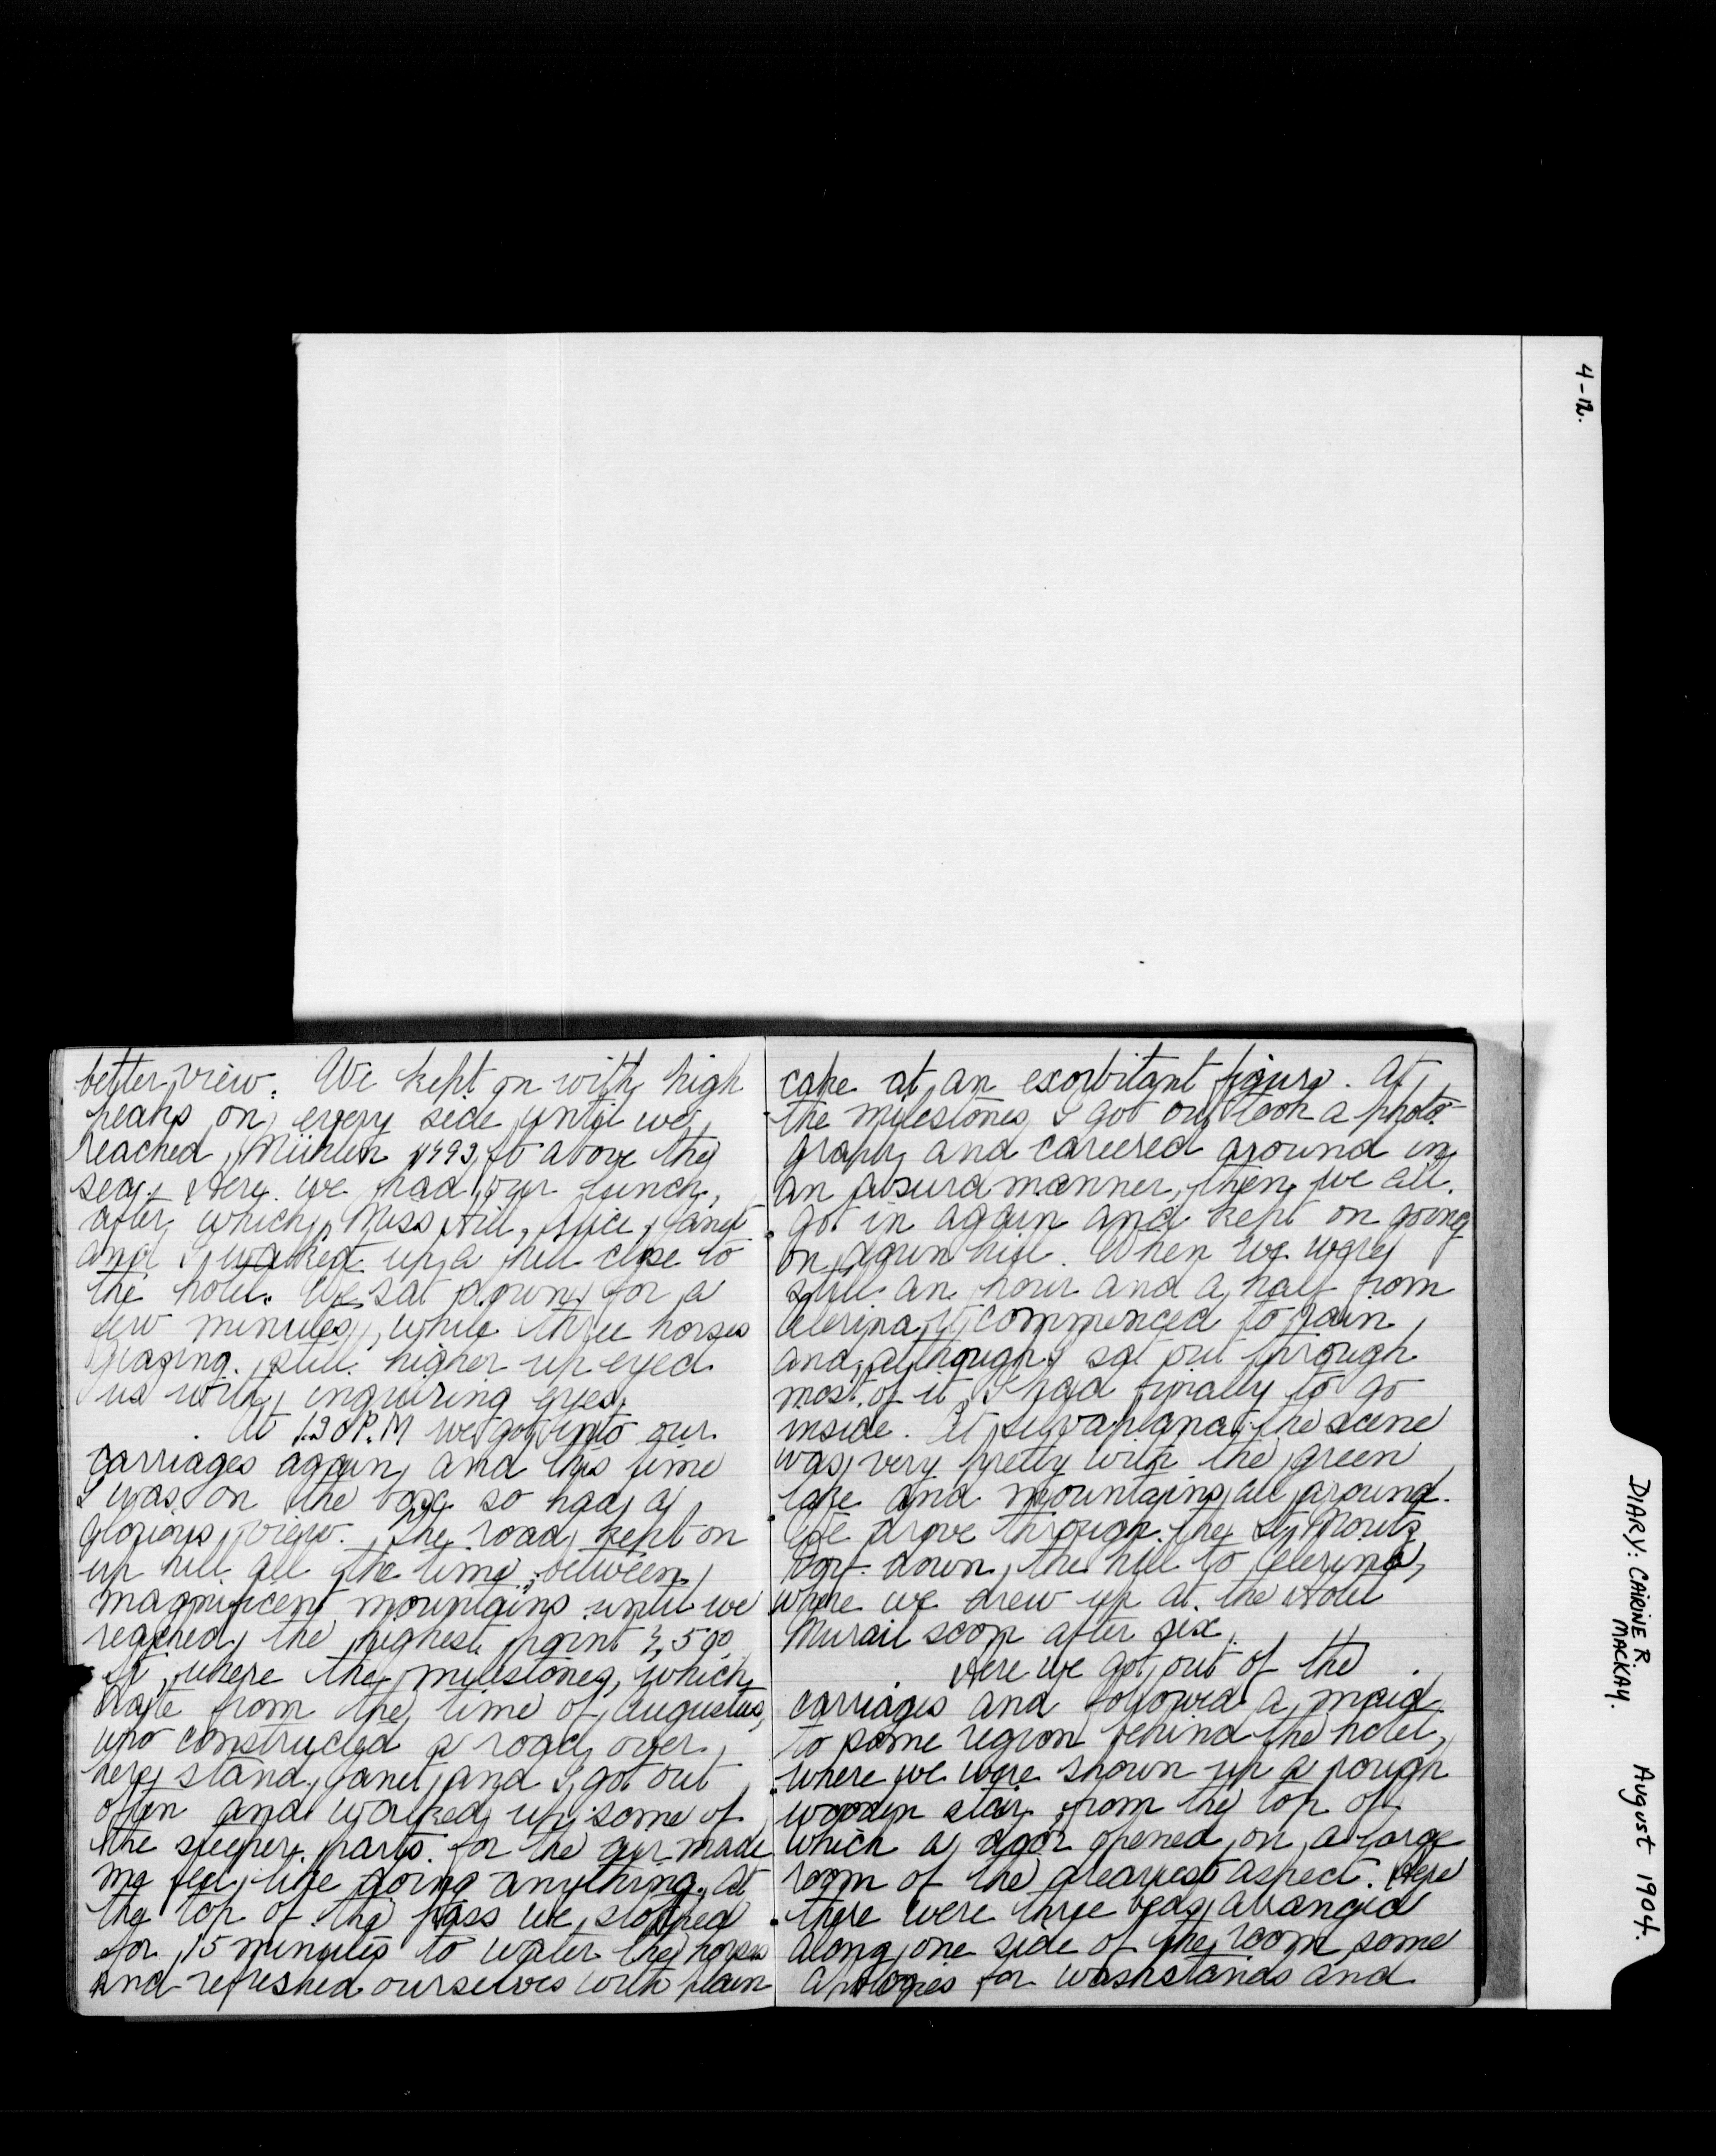 better view. We kept on with high
peaks on every side until we
reached Mühlen 4793 ft above the
sea. Here we had our lunch,
after which, Miss Hill, Alice, Janet
and I walked up a hill close to
the hotel. We sat down for a
few minutes, while three horses
grazing still higher up eyed
us with inquiring eyes.
At 1.20 P.M we got into our
carriages again, and this time
I was on the box so had a
glorious view. The road kept on
up hill all the time, between
magnificent mountains until we
reached the highest point
ft, where the milestones, which
date from the time of Augustus,
who constructed a road over
here stand. Janet and I got out
often and walked up some of
the steeper parts for the air made
me feel like doing anything. At
the top of the pass we stopped
for 15 minutes to water the horses
and refreshed ourselves with plain
cake at an exorbitant figure. At
the milestones I got out, took a photo-
graph and careered around in
an absurd manner, then we all
got in again and kept on going
on down hill. When we were
still an hour and a half from
Celerina, it commenced to rain,
and although I sat out through
most of it, I had finally to go
inside. At Silvaplana the scene
was very pretty with the green
lake and mountains all around.
We drove through the St. Moritz
Dorf down the hill to Celerina,
where we drew up at the Hotel
Murail soon after six.
Here we got out of the
carriages and followed a maid
to some region behind the hotel,
where we were shown up a rough
wooden stair from the top of
which a door opened on a large
room of the dreariest aspect. Here
there were three beds arranged
along one side of the room some
apologies for washstands and
4-12.
DIARY: CAIRINE R.
MACKAY.
August 1904.